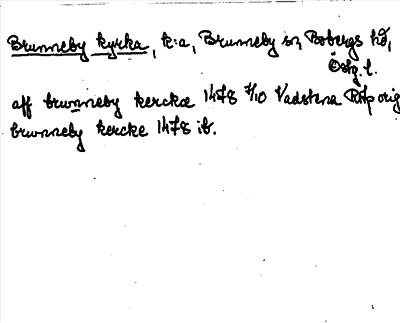 Brunneby kyrka, k:a, Brunneby sn, Bobergs hd,
Östg. l.
aff brwnneby kerckæ 1478 7/10 Vadstena RAp orig
brwnneby kercke 1478 ib.